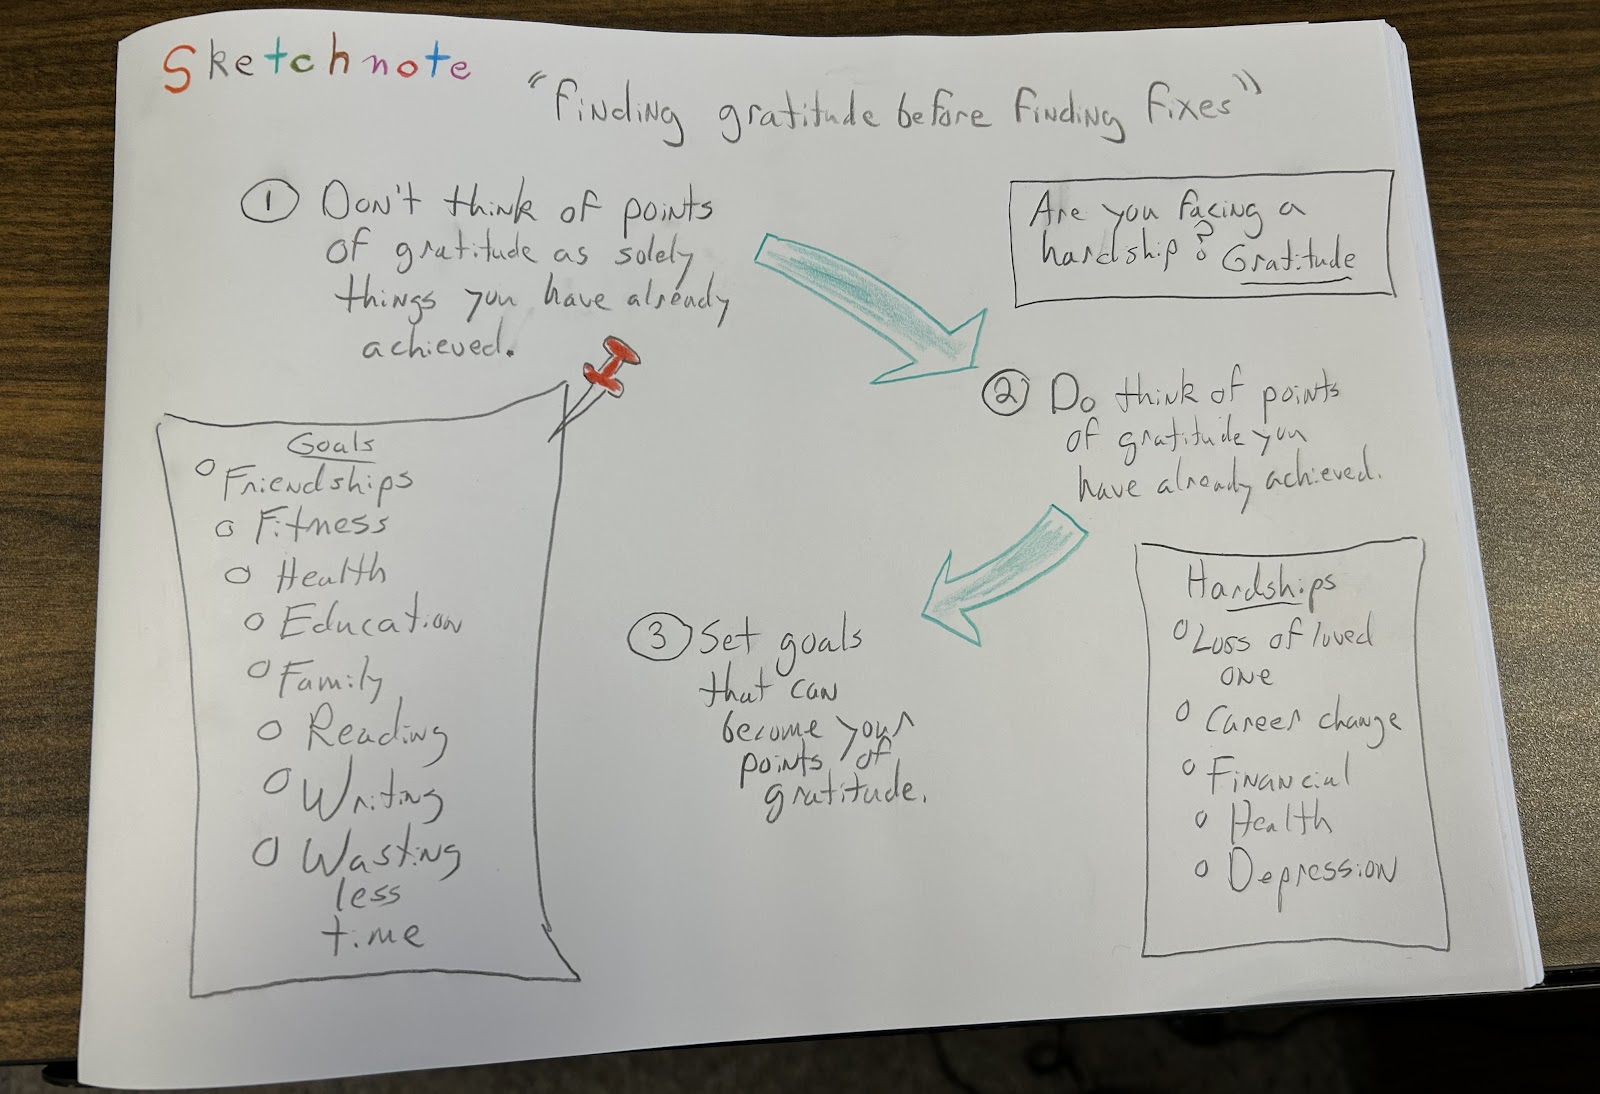 Sketchnote
"Finding gratitude before finding fixes"
① Don't think of points
of gratitude as solely
things you have already
achieved.
Are you facing a
hardship? Gratitude
② Do think of points
of gratitude you
have already achieved.
③ Set goals
that can
become your
points of
gratitude.
Goals
○ Friendships
○ Fitness
○ Health
○ Education
○ Family
○ Reading
○ Writing
○ Wasting
less
time
Hardships
○ Loss of loved
one
○ Career change
○ Financial
○ Health
○ Depression